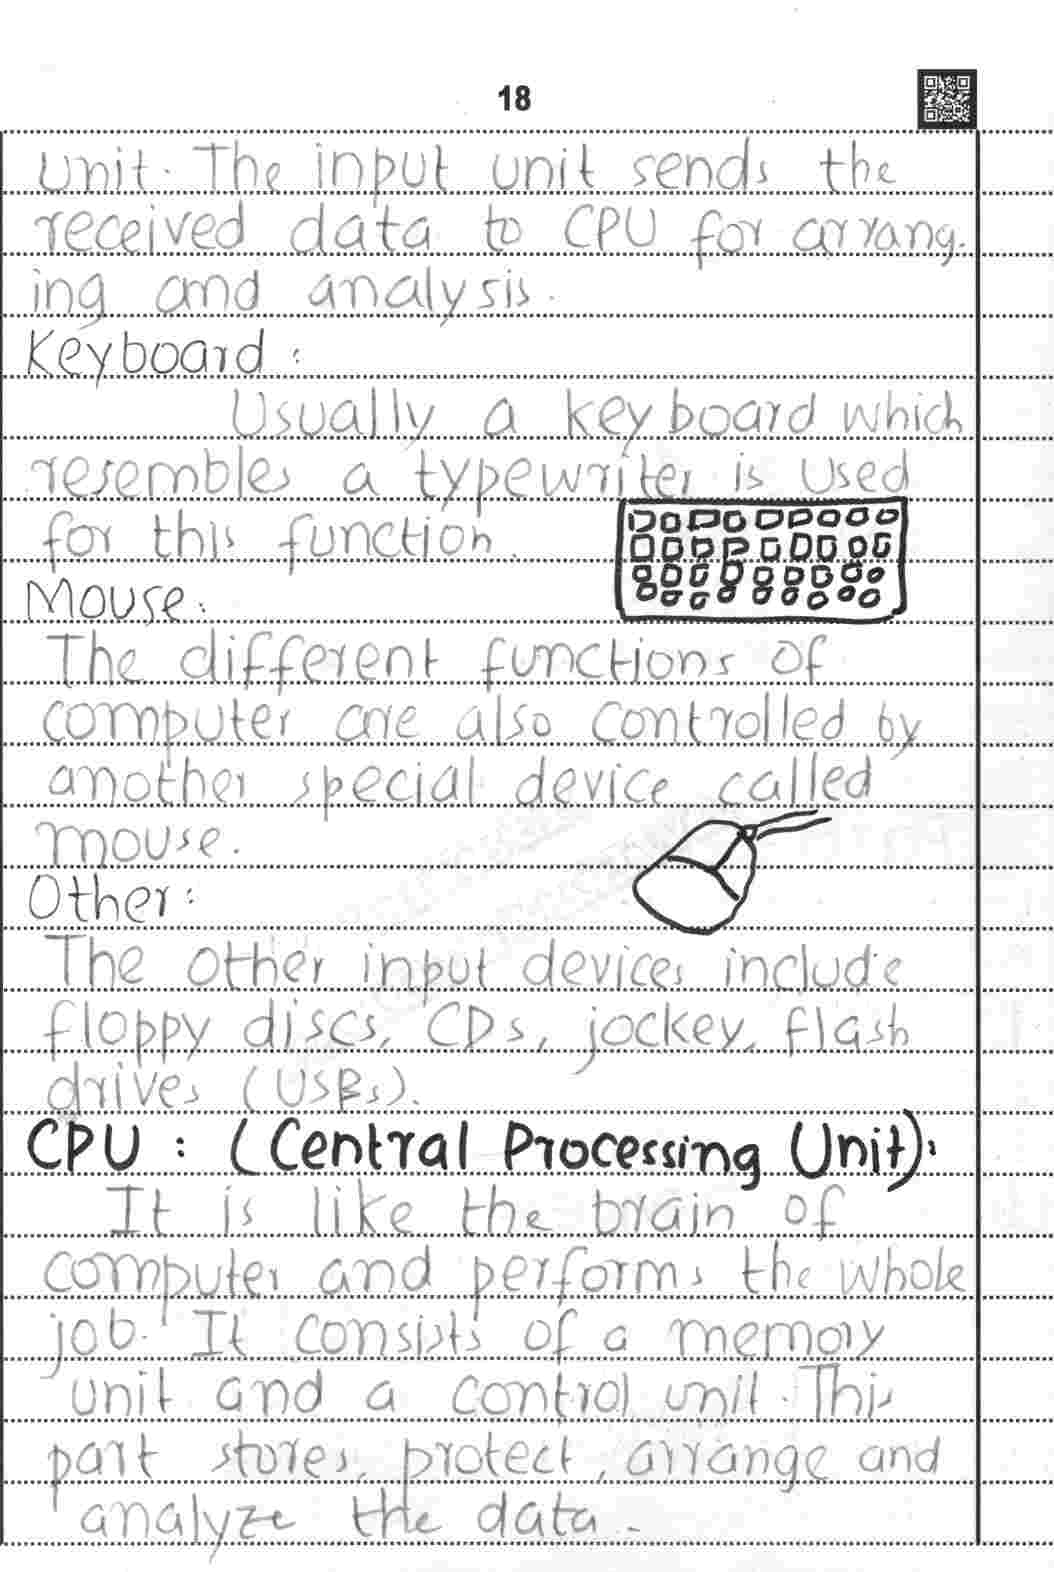 18
unit. The input unit sends the
received data to CPU for arrang-
ing and analysis.
Keyboard :
Usually a keyboard which
resembles a typewriter is used
for this function.
Mouse:
The different functions of
computer are also controlled by
another special device called
mouse.
Other:
The other input devices include
floppy discs, CDs, jockey, flash
drives (USBs).
CPU : (Central Processing Unit):
It is like the brain of
computer and performs the whole
job. It consists of a memory
unit and a control unit. This
part stores, protect, arrange and
analyze the data.